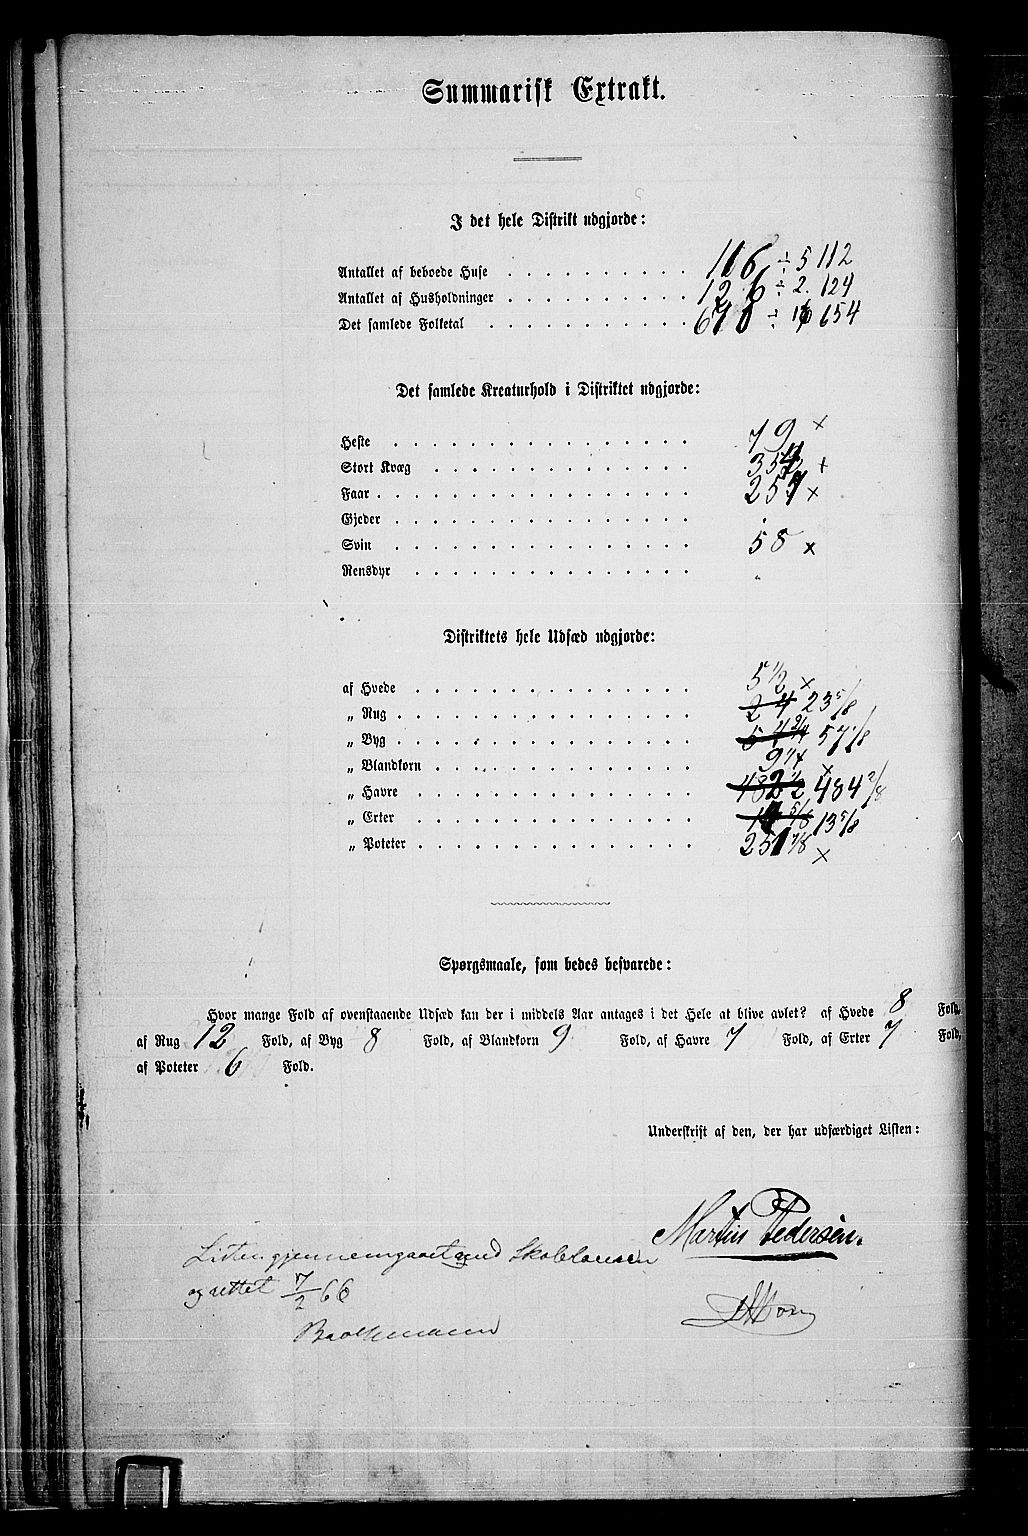 Summarisk Extrakt.
I det hele Distrikt udgjorde:
Antallet af beboede Huse . . . . . . . . . . . 116 ÷ 5 112
Antallet af Husholdninger . . . . . . . . . . 126 ÷ 2. 124
Det samlede Folketal . . . . . . . . . . . ÷ 16 654
Det samlede Kreaturhold i Distriktet udgjorde:
Heste . . . . . . . . . . . . . . . . 79 ×
Stort Kvæg . . . . . . . . . . . . . . ×
Faar . . . . . . . . . . . . . . . . . 257 ×
Gjeder . . . . . . . . . . . . . . . .
Svin . . . . . . . . . . . . . . . . 58 ×
Rensdyr . . . . . . . . . . . . . . . „
Distriktets hele Udsæd udgjorde:
af Hvede . . . . . . . . . . . . . . . 5 1/2 ×
„ Rug . . . . . . . . . . . . . . . . 24 23 5/8
„ Byg . . . . . . . . . . . . . . . . 57 1/8
„ Blandkorn . . . . . . . . . . . . . . 9 1/4 ×
„ Havre . . . . . . . . . . . . . . . 482 1/2 484 2/8
„ Erter . . . . . . . . . . . . . . . 13 5/8
„ Poteter . . . . . . . . . . . . . . 251 7/8 ×
Spørgsmaale, som bedes besvarede:
Hvor mange Fold af ovenstaaende Udsæd kan der i middels Aar antages i det Hele at blive avlet? af Hvede 8 Fold,
af Rug 12 Fold, af Byg 8 Fold, af Blandkorn 9 Fold, af Havre 7 Fold, af Erter 7 Fold,
af Poteter 6 Fold.
Underskrift af den, der har udfærdiget Listen:
Martin Pedersen.
Listen gjennemgaaet med Skoletausen
og rettet 7/2 66